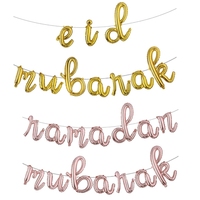 eid
mubarak
ramadan
mubarak